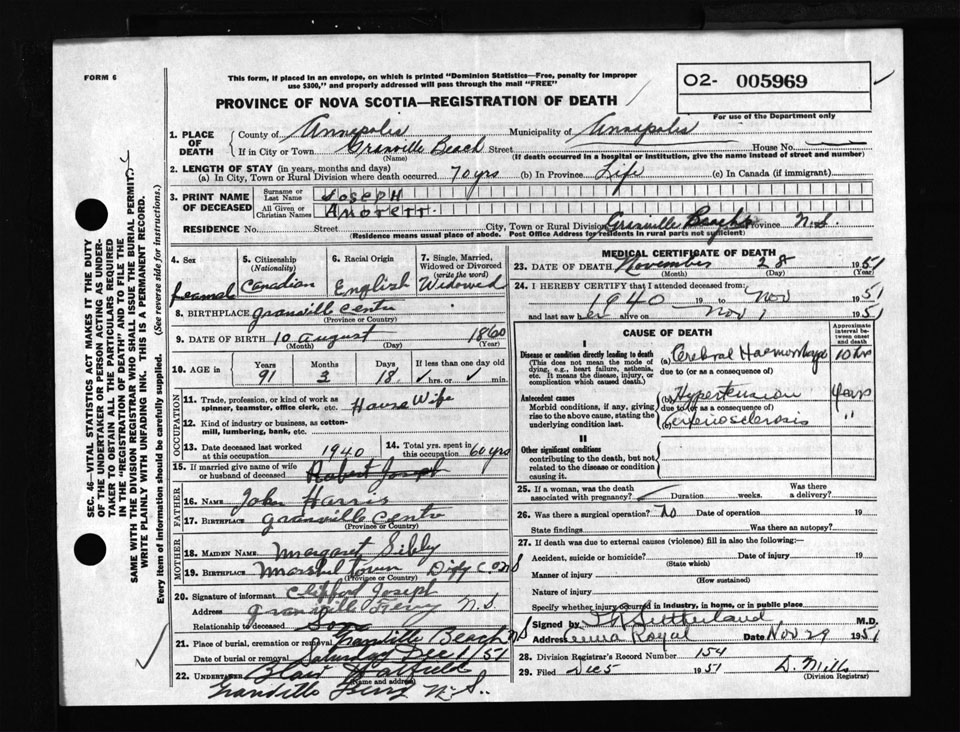 FORM 6
This form, if placed in an envelope, on which is printed "Dominion Statistics—Free, penalty for improper
use $300," and properly addressed will pass through the mail "FREE"
O2- 005969
PROVINCE OF NOVA SCOTIA—REGISTRATION OF DEATH
For use of the Department only
1. PLACE OF DEATH
County of Annapolis Municipality of Annapolis
If in City or Town Granville Beach Street House No.
(Name) (If death occurred in a hospital or institution, give the name instead of street and number)
2. LENGTH OF STAY (in years, months and days)
(a) In City, Town or Rural Division where death occurred 70 yrs (b) In Province Life (c) In Canada (if immigrant)
3. PRINT NAME OF DECEASED
Surname or Last Name JOSEPH
All Given or Christian Names
RESIDENCE No. Street City, Town or Rural Division Granville Beach Province N.S.
(Residence means usual place of abode. Post Office Address for residents in rural parts not sufficient)
4. Sex Female
5. Citizenship (Nationality) Canadian
6. Racial Origin English
7. Single, Married, Widowed or Divorced (write the word) Widowed
8. BIRTHPLACE Granville Centre
(Province or Country)
9. DATE OF BIRTH 10 August 1860
(Month) (Day)
10. AGE in Years 91 Months 3 Days 18 If less than one day old hrs. or min.
OCCUPATION
11. Trade, profession, or kind of work as spinner, teamster, office clerk, etc. House Wife
12. Kind of industry or business, as cotton-mill, lumbering, bank, etc.
13. Date deceased last worked at this occupation 1940
14. Total yrs. spent in this occupation 60 yrs
15. If married give name of wife or husband of deceased Robert Joseph
FATHER
16. NAME John Harris
17. BIRTHPLACE Granville Centre
(Province or Country)
MOTHER
18. MAIDEN NAME Margaret Sibly
19. BIRTHPLACE Marshal town Digby Co N S
(Province or Country)
20. Signature of informant Clifford Joseph
Address Granville Ferry N.S.
Relationship to deceased Son
21. Place of burial, cremation or removal Granville Beach N S
Date of burial or removal Saturday Dec 1/51
22. UNDERTAKER Blair
(Name and address)
Granville Ferry N.S.
MEDICAL CERTIFICATE OF DEATH
23. DATE OF DEATH November 28 1951
(Month) (Day) (Year)
24. I HEREBY CERTIFY that I attended deceased from:
1940 19 to Nov 1951
and last saw her alive on Nov 1 1951
CAUSE OF DEATH
Approximate interval between onset and death
I
Disease or condition directly leading to death (a) Cerebral Haemorrhage 10 hrs
(This does not mean the mode of dying, e.g., heart failure, asthenia, etc. It means the disease, injury, or complication which caused death.)
due to (or as a consequence of)
Antecedent causes
Morbid conditions, if any, giving rise to the above cause, stating the underlying condition last.
(b) Hypertension years
due to (or as a consequence of)
(c) arteriosclerosis "
II
Other significant conditions
contributing to the death, but not related to the disease or condition causing it
25. If a woman, was the death associated with pregnancy? Duration weeks. Was there a delivery?
26. Was there a surgical operation? No Date of operation 19
State findings Was there an autopsy?
27. If death was due to external causes (violence) fill in also the following:—
Accident, suicide or homicide? Date of injury 19
(State which)
Manner of injury
(How sustained)
Nature of injury
Specify whether injury occurred in industry, in home, or in public place
Signed by Sutherland M.D.
Address Royal Date Nov 29 1951
28. Division Registrar's Record Number 154
29. Filed Dec 5 1951 D. Mills
(Division Registrar)
SEC. 46—VITAL STATISTICS ACT MAKES IT THE DUTY
OF THE UNDERTAKER OR PERSON ACTING AS UNDER-
TAKER TO OBTAIN ALL THE PARTICULARS REQUIRED
IN THE "REGISTRATION OF DEATH" AND TO FILE THE
SAME WITH THE DIVISION REGISTRAR WHO SHALL ISSUE THE BURIAL PERMIT.
WRITE PLAINLY WITH UNFADING INK. THIS IS A PERMANENT RECORD.
Every item of information should be carefully supplied. (See reverse side for instructions.)